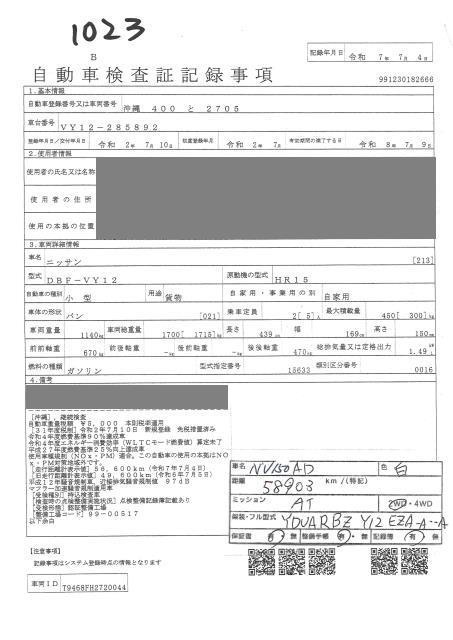 1023
B
記録年月日 令和 7年 7月 4日
自動車検査証記録事項
991230182666
1.基本情報
自動車登録番号又は車両番号 沖縄 400 と 2705
車台番号 VY12-285892
登録年月日/交付年月日 令和 2年 7月 10日 初度登録年月 令和 2年 7月 有効期間の満了する日 令和 8年 7月 9日
2.使用者情報
使用者の氏名又は名称
使用者の住所
使用の本拠の位置
3.車両詳細情報
車名 ニッサン [213]
型式 DBF-VY12 原動機の型式 HR15
自動車の種別 小型 用途 貨物 自家用・事業用の別 自家用
車体の形状 バン [021] 乗車定員 2[ 5]人 最大積載量 450[ 300]kg
車両重量 1140kg 車両総重量 1700[ 1715]kg 長さ 439cm 幅 169cm 高さ 150cm
前前軸重 670kg 前後軸重 -kg 後前軸重 -kg 後後軸重 470kg 総排気量又は定格出力 1.49L
燃料の種類 ガソリン 型式指定番号 15633 類別区分番号 0016
4.備考
[沖縄],継続検査
自動車重量税額 ¥5,000 本則税率適用
[31年度税制]令和2年7月10日 新規登録 免税措置済み
令和4年度燃費基準90%達成車
令和4年度エネルギー消費効率(WLTCモード燃費値)算定未了
平成27年度燃費基準25%向上達成車
使用車種規制(NOx・PM)適合。この自動車の使用の本拠はNO
x・PM対策地域外です。
[走行距離計表示値]56,600km(令和7年7月4日)
[旧走行距離計表示値]49,600km(令和6年7月5日)
平成12年騒音規制車、近接排気騒音規制値 97dB
マフラー加速騒音規制適用車
[受検種別]持込検査車
[検査時の点検整備実施状況]点検整備記録簿記載あり
[受検形態]認証整備工場
[整備工場コード]99-00517
以下余白
車名 NV150AD 色 白
距離 58903 km/(特記)
ミッション AT 2WD・4WD
架装・フル型式 YDUARBZ Y12 EZA-A--A
保証書 有・無 整備手帳 有・無 記録簿 有・無
【注意事項】
記録事項はシステム登録時点の情報となります
車両ID T9468FH2720044